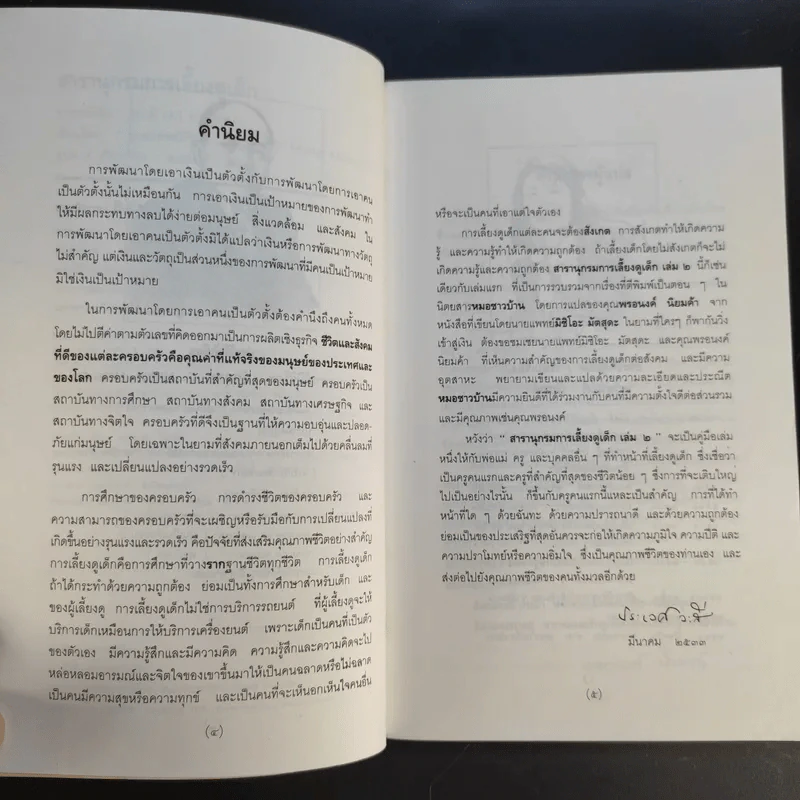 คำนิยม
การพัฒนาโดยเอาเงินเป็นตัวตั้งกับการพัฒนาโดยการเอาคน
เป็นตัวตั้งนั้นไม่เหมือนกัน การเอาเงินเป็นเป้าหมายของการพัฒนาทำ
ให้มีผลกระทบทางลบได้ง่ายต่อมนุษย์ สิ่งแวดล้อม และสังคม ใน
การพัฒนาโดยเอาคนเป็นตัวตั้งมิได้แปลว่าเงินหรือการพัฒนาทางวัตถุ
ไม่สำคัญ แต่เงินและวัตถุเป็นส่วนหนึ่งของการพัฒนาที่มีคนเป็นเป้าหมาย
มิใช่เงินเป็นเป้าหมาย
ในการพัฒนาโดยการเอาคนเป็นตัวตั้งต้องคำนึงถึงคนทั้งหมด
โดยไม่ไปตีค่าตามตัวเลขที่คิดออกมาเป็นการผลิตเชิงธุรกิจ ชีวิตและสังคม
ที่ดีของแต่ละครอบครัวคือคุณค่าที่แท้จริงของมนุษย์ของประเทศและ
ของโลก ครอบครัวเป็นสถาบันที่สำคัญที่สุดของมนุษย์ ครอบครัวเป็น
สถาบันทางการศึกษา สถาบันทางสังคม สถาบันทางเศรษฐกิจ และ
สถาบันทางจิตใจ ครอบครัวที่ดีจึงเป็นฐานที่ให้ความอบอุ่นและปลอด-
ภัยแก่มนุษย์ โดยเฉพาะในยามที่สังคมภายนอกเต็มไปด้วยคลื่นลมที่
รุนแรง และเปลี่ยนแปลงอย่างรวดเร็ว
การศึกษาของครอบครัว การดำรงชีวิตของครอบครัว และ
ความสามารถของครอบครัวที่จะเผชิญหรือรับมือกับการเปลี่ยนแปลงที่
เกิดขึ้นอย่างรุนแรงและรวดเร็ว คือปัจจัยที่ส่งเสริมคุณภาพชีวิตอย่างสำคัญ
การเลี้ยงดูเด็กคือการศึกษาที่วางรากฐานชีวิตทุกชีวิต การเลี้ยงดูเด็ก
ถ้าได้กระทำด้วยความถูกต้อง ย่อมเป็นทั้งการศึกษาสำหรับเด็ก และ
ของผู้เลี้ยงดู การเลี้ยงดูเด็กไม่ใช่การบริการรถยนต์ ที่ผู้เลี้ยงดูจะให้
บริการเด็กเหมือนการให้บริการเครื่องยนต์ เพราะเด็กเป็นคนที่เป็นตัว
ของตัวเอง มีความรู้สึกและมีความคิด ความรู้สึกและความคิดจะไป
หล่อหลอมอารมณ์และจิตใจของเขาขึ้นมาให้เป็นคนฉลาดหรือไม่ฉลาด
เป็นคนมีความสุขหรือความทุกข์ และเป็นคนที่จะเห็นอกเห็นใจคนอื่น
(๔)
หรือจะเป็นคนที่เอาแต่ใจตัวเอง
การเลี้ยงดูเด็กแต่ละคนจะต้องสังเกต การสังเกตทำให้เกิดความ
รู้ และความรู้ทำให้เกิดความถูกต้อง ถ้าเลี้ยงเด็กโดยไม่สังเกตก็จะไม่
เกิดความรู้และความถูกต้อง สารานุกรมการเลี้ยงดูเด็ก เล่ม ๒ นี้ก็เช่น
เดียวกับเล่มแรก ที่เป็นการรวบรวมจากเรื่องที่ตีพิมพ์เป็นตอน ๆ ใน
นิตยสารหมอชาวบ้าน โดยการแปลของคุณพรอนงค์ นิยมค้า จาก
หนังสือที่เขียนโดยนายแพทย์มิชิโอะ มัตสุดะ ในยามที่ใครๆ ก็พากันวิ่ง
เข้าสู่เงิน ต้องขอชมเชยนายแพทย์มิชิโอะ มัตสุดะ และคุณพรอนงค์
นิยมค้า ที่เห็นความสำคัญของการเลี้ยงดูเด็กต่อสังคม และมีความ
อุตสาหะ พยายามเขียนและแปลด้วยความละเอียดและประณีต
หมอชาวบ้านมีความยินดีที่ได้ร่วมงานกับคนที่มีความตั้งใจดีต่อส่วนรวม
และมีคุณภาพเช่นคุณพรอนงค์
หวังว่า “ สารานุกรมการเลี้ยงดูเด็ก เล่ม ๒ ” จะเป็นคู่มือเล่ม
หนึ่งให้กับพ่อแม่ ครู และบุคคลอื่น ๆ ที่ทำหน้าที่เลี้ยงดูเด็ก ซึ่งเชื่อว่า
เป็นครูคนแรกและครูที่สำคัญที่สุดของชีวิตน้อย ๆ ซึ่งการที่จะเติบใหญ่
ไปเป็นอย่างไรนั้น ก็ขึ้นกับครูคนแรกนี้แหละเป็นสำคัญ การที่ได้ทำ
หน้าที่ใด ๆ ด้วยฉันทะ ด้วยความปรารถนาดี และด้วยความถูกต้อง
ย่อมเป็นของประเสริฐที่สุดอันควรจะก่อให้เกิดความภูมิใจ ความปีติ และ
ความปราโมทย์หรือความอิ่มใจ ซึ่งเป็นคุณภาพชีวิตของท่านเอง และ
ส่งต่อไปยังคุณภาพชีวิตของคนทั้งมวลอีกด้วย
ประเวศ วะสี
มีนาคม ๒๕๓๓
(๕)